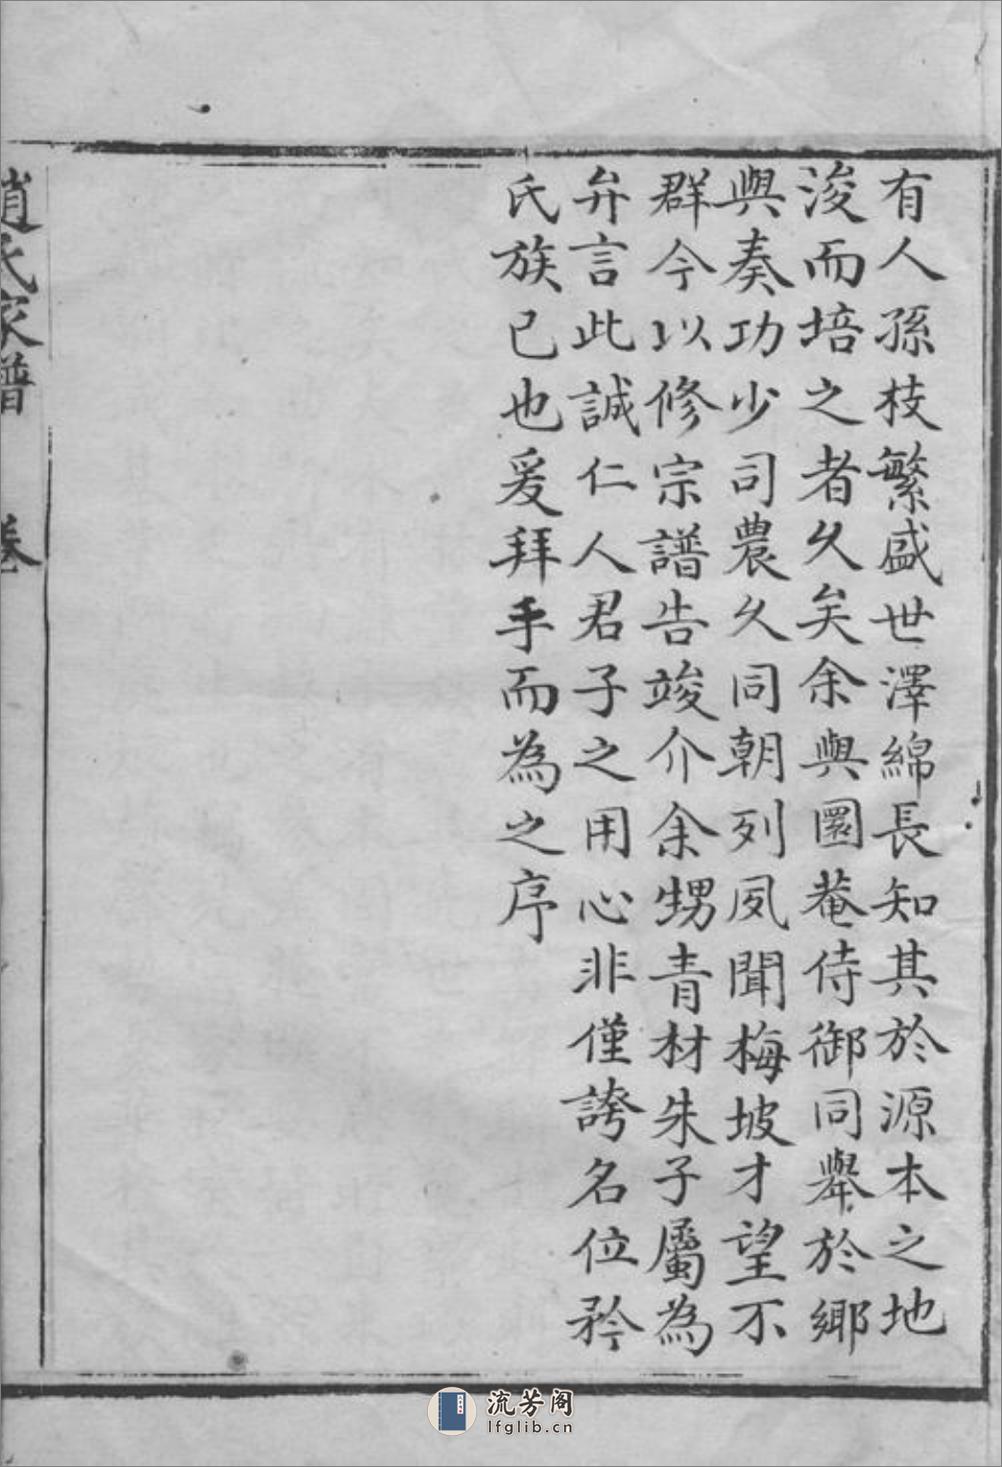 有人孫枝繁盛世澤綿長知其於源本之地
浚而培之者久矣余與園菴侍御同舉於鄉
與奏功少司農久同朝列夙聞梅坡才望不
群今以修宗譜告竣介余甥青材朱子屬為
弁言此誠仁人君子之用心非僅誇名位矜
氏族已也爰拜手而為之序
趙氏家譜 卷
流芳阁
lfglib.cn